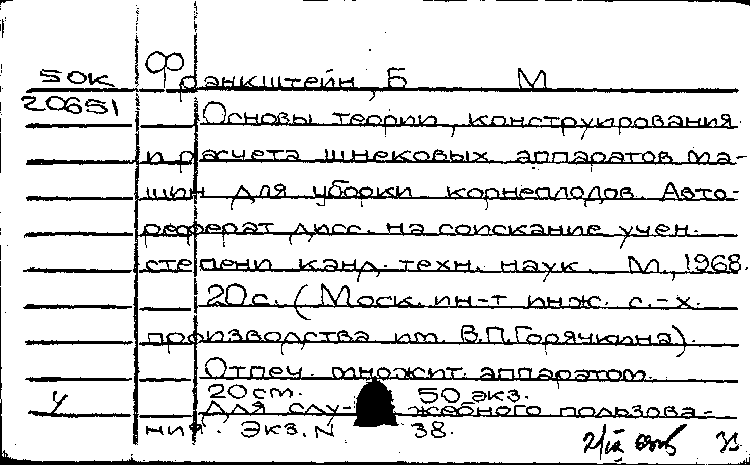 50К Франкштейн, Б М
20651 Основы теории, конструирования
и расчета шнековых аппаратов ма-
шин для уборки корнеплодов. Авто-
реферат дисс. на соискание учен.
степени канд. техн. наук. М., 1968.
20с. (Моск. ин-т инж. с.-х.
производства им. В.П.Горячкина).
Отпеч. множит. аппаратом.
20см. 50 экз.
У Для слу- жебного пользова-
ния. Экз. N 38.